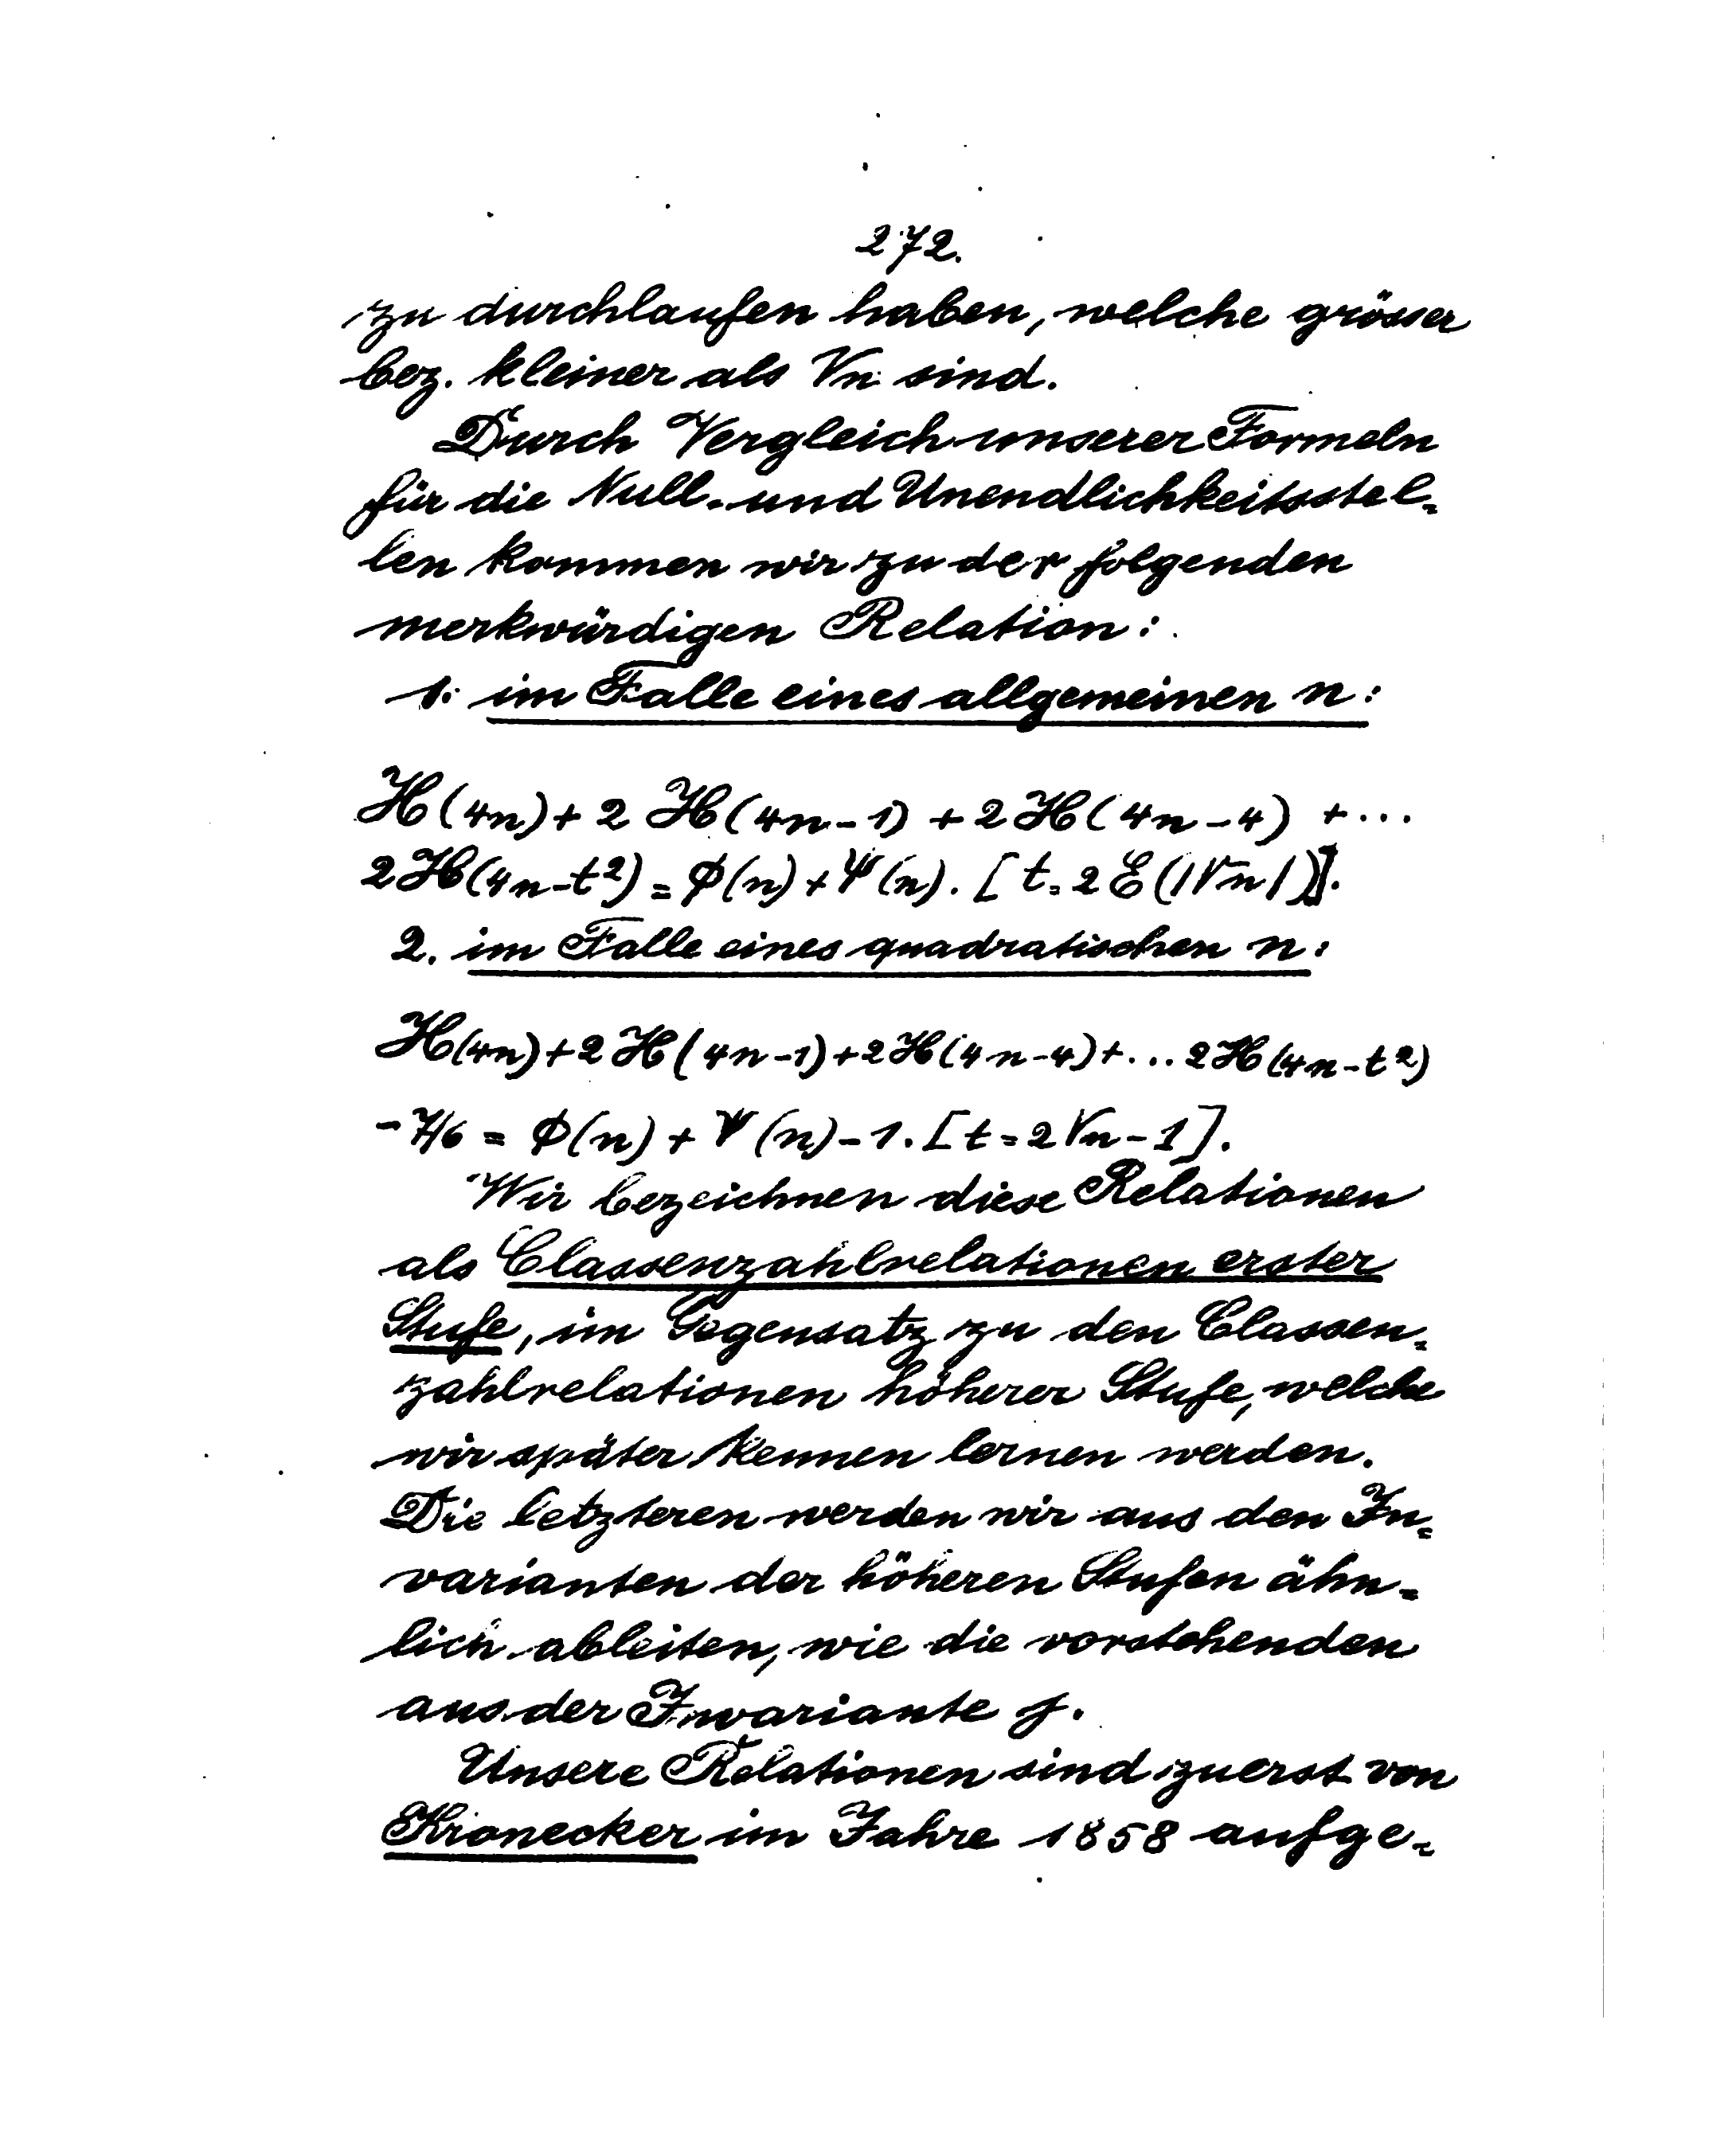 272.
zu durchlaufen haben, welche grösser
bez. kleiner als √n sind.
Durch Vergleich unserer Formeln
für die Null- und Unendlichkeitsstel-
len kommen wir zu der folgenden
merkwürdigen Relation:
1. im Falle eines allgemeinen n:
H(4n) + 2 H(4n-1) + 2 H(4n-4) + ...
2H(4n-t²) = Φ(n) + Ψ(n). [t = 2 E(|√n|)].
2. im Falle eines quadratischen n:
H(4n) + 2 H(4n-1) + 2H(4n-4) + ... 2H(4n-t²)
- 7/6 = Φ(n) + Ψ(n) - 1. [t = 2√n - 1].
Wir bezeichnen diese Relationen
als Classenzahlrelationen erster
Stufe, im Gegensatz zu den Classen-
zahlrelationen höherer Stufe, welche
wir später kennen lernen werden.
Die letzteren werden wir aus den In-
varianten der höheren Stufen ähn-
lich ableiten, wie die vorstehenden
aus der Invariante J.
Unsere Relationen sind zuerst von
Kronecker im Jahre 1858 aufge-